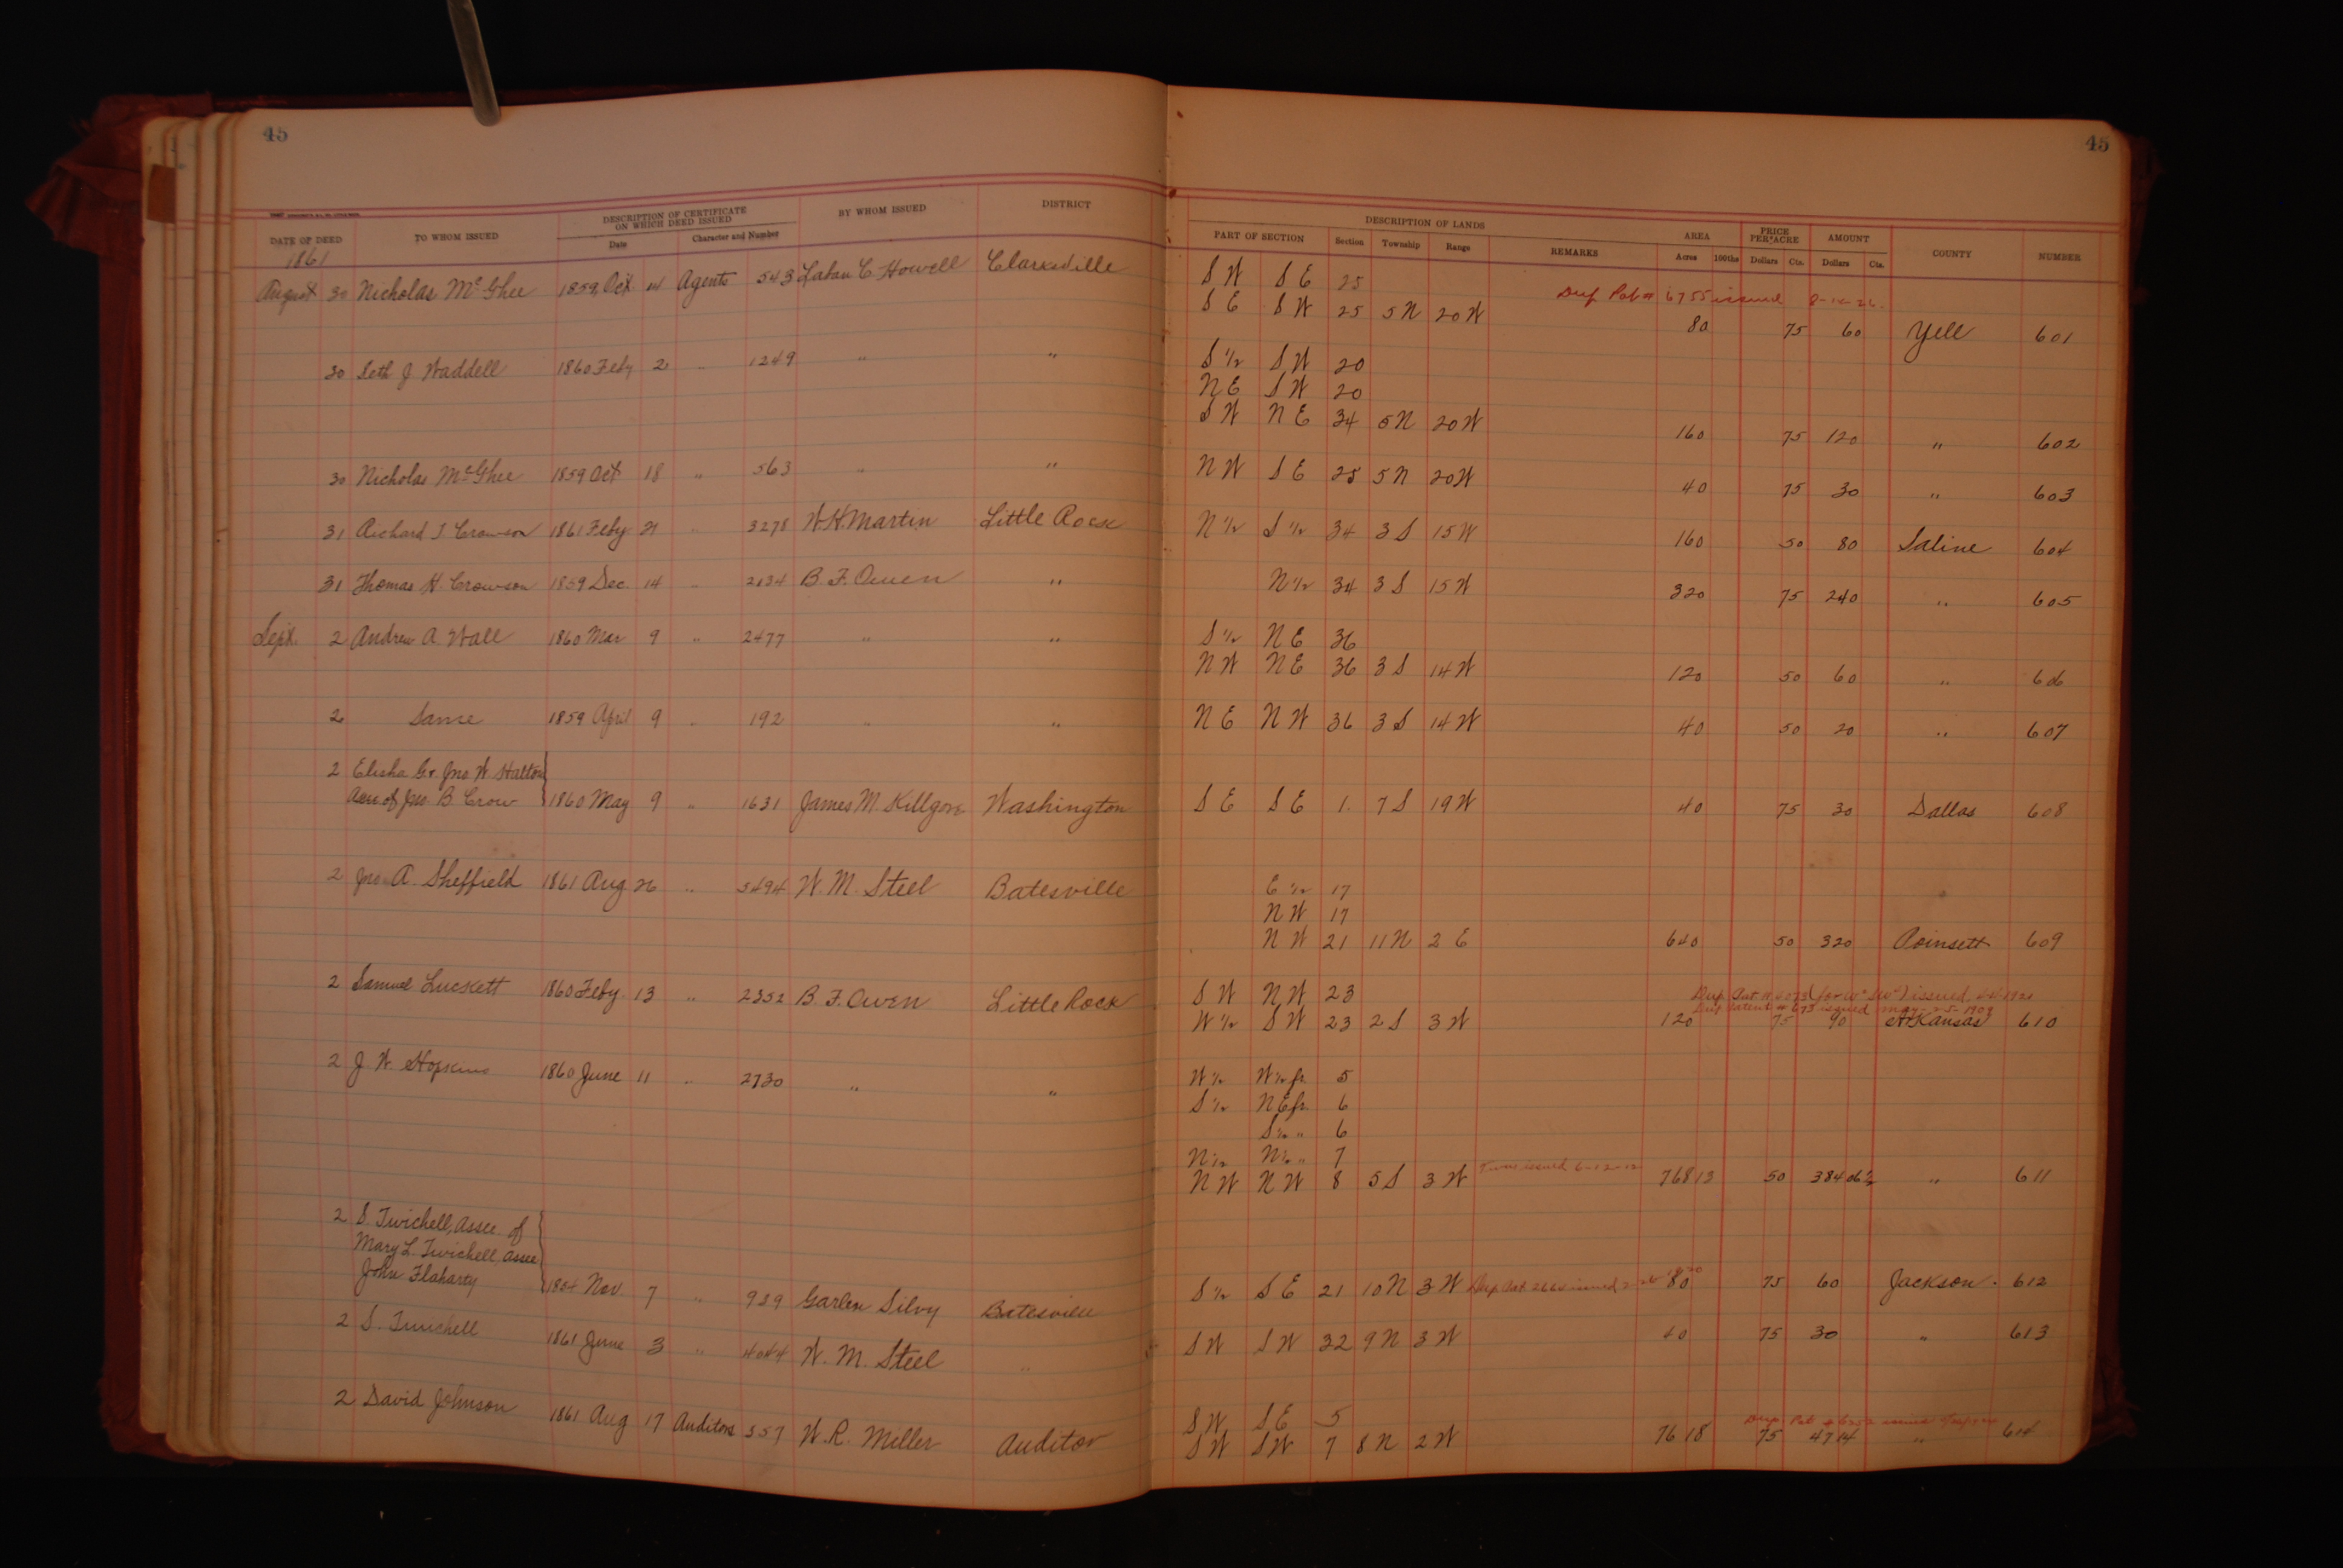 45
45
DATE OF DEED TO WHOM ISSUED DESCRIPTION OF CERTIFICATE ON WHICH DEED ISSUED Date Character and Number BY WHOM ISSUED DISTRICT
DESCRIPTION OF LANDS PART OF SECTION Section Township Range REMARKS AREA Acres 100ths PRICE PER ACRE Dollars Cts. AMOUNT Dollars Cts. COUNTY NUMBER
1861
August 30 Nicholas McGhee 1859 Oct 14 Agents 543 Laban C Howell Clarksville SW SE 25
Dup Pat # 6755 issued
SE SW 25 5N 20W 80 75 60 Yell 601
30 Seth J Waddell 1860 Feby 2 " 1249 " " S½ SW 20
NE SW 20
SW NE 34 5N 20W 160 75 120 " 602
30 Nicholas McGhee 1859 Oct 18 " 563 " " NW SE 25 5N 20W 40 75 30 " 603
31 Richard J Crowson 1861 Feby 21 " 3278 W.H. Martin Little Rock N½ S½ 34 3S 15W 160 50 80 Saline 604
31 Thomas H. Crowson 1859 Dec. 14 " 2134 B.F. Owen " N½ 34 3S 15W 320 75 240 " 605
Sept. 2 Andrew A. Wall 1860 Mar 9 " 2477 " " S½ NE 36
NW NE 36 3S 14W 120 50 60 " 606
2 Same 1859 April 9 " 192 " " NE NW 36 3S 14W 40 50 20 " 607
2 Elisha G. & Jno W Hatton
Assee of Jno. B. Crow 1860 May 9 " 1631 James M Killgore Washington SE SE 1. 7S 19W 40 75 30 Dallas 608
2 Jno. A. Sheffield 1861 Aug 26 " 5494 W. M. Steel Batesville E½ 17
NW 17
NW 21 11N 2E 640 50 320 Poinsett 609
2 Samuel Luckett 1860 Feby. 13 " 2352 B.F. Owen Little Rock SW NW 23
Dup Patent # 673 issued May-25-1903
W½ SW 23 2S 3W 120 75 90 Arkansas 610
2 J. W. Hopkins 1860 June 11 " 2730 " " W½ W½ fr. 5
S½ NE fr. 6
S½ " 6
N½ N½ " 7
NW NW 8 5S 3W issued 6-12-12 768 13 50 384 06½ " 611
2 S. Twichell, Assee. of
Mary L. Twichell, assee
John Flaharty 1854 Nov. 7 " 939 Garlen Silvy Batesville S½ SE 21 10N 3W Dup Pat 2660 issued 80 75 60 Jackson. 612
2 S. Twichell 1861 June 3 " 4044 W. M. Steel " SW SW 32 9N 3W 40 75 30 " 613
2 David Johnson 1861 Aug 17 Auditors 357 W.R. Miller Auditor SW SE 5
Dup Pat
SW SW 7 8N 2W 76 18 75 47 14 " 614